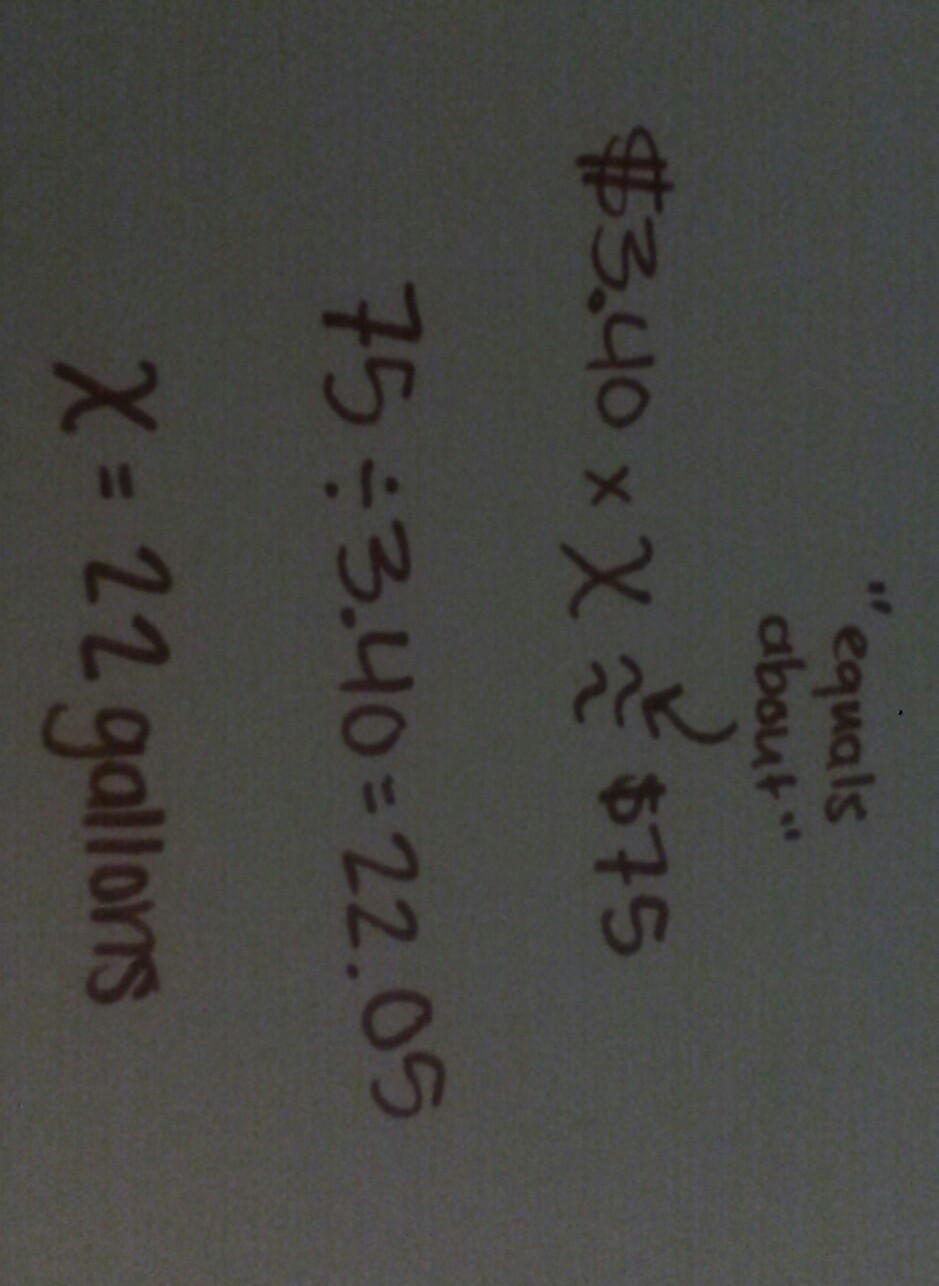 "equals
about"
$3.40 × x ≈ $75
75 ÷ 3.40 = 22.05
x = 22 gallons